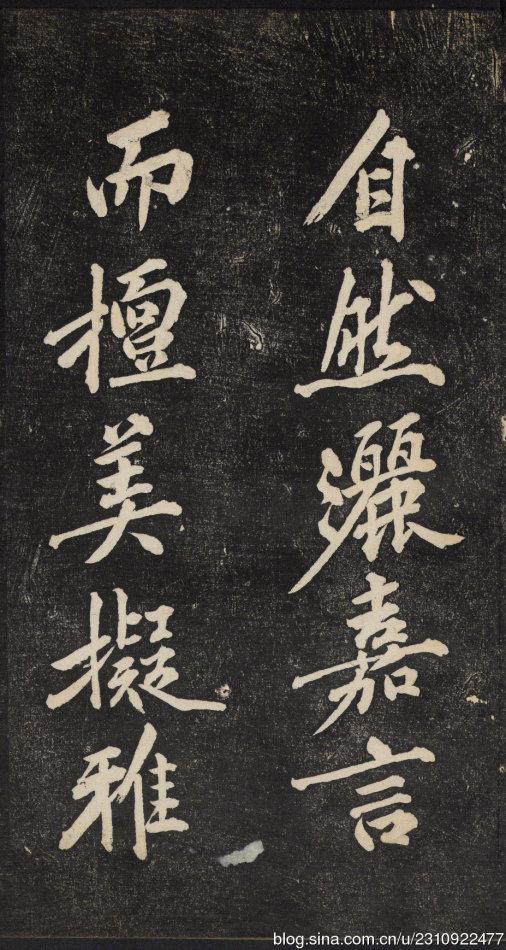 自然灑嘉言
而擅美擬雅
blog.sina.com.cn/u/2310922477